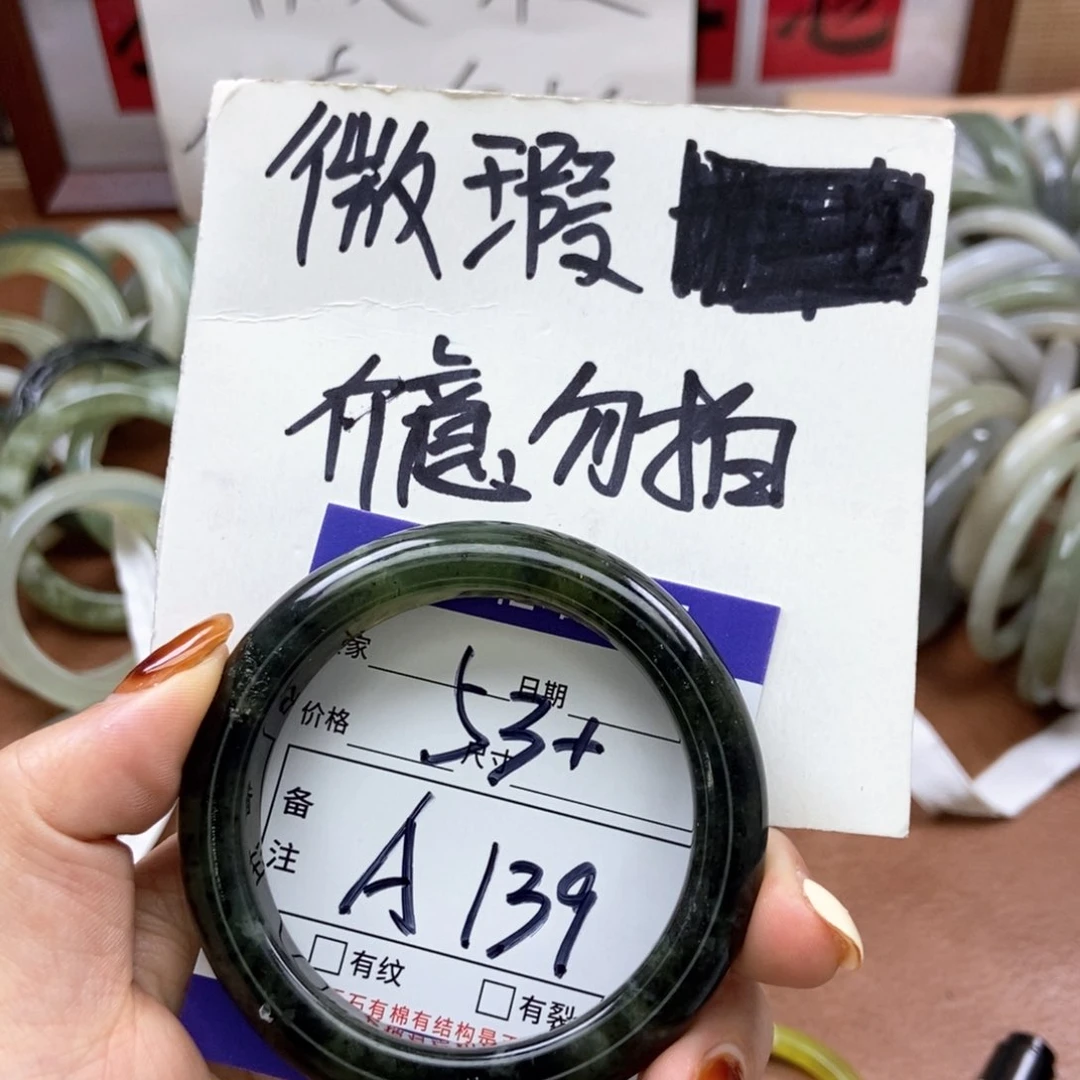 微瑕
介意勿拍
家 日期
53+
价格 尺寸
备注
A 139
有纹 有裂
石有棉有结构是